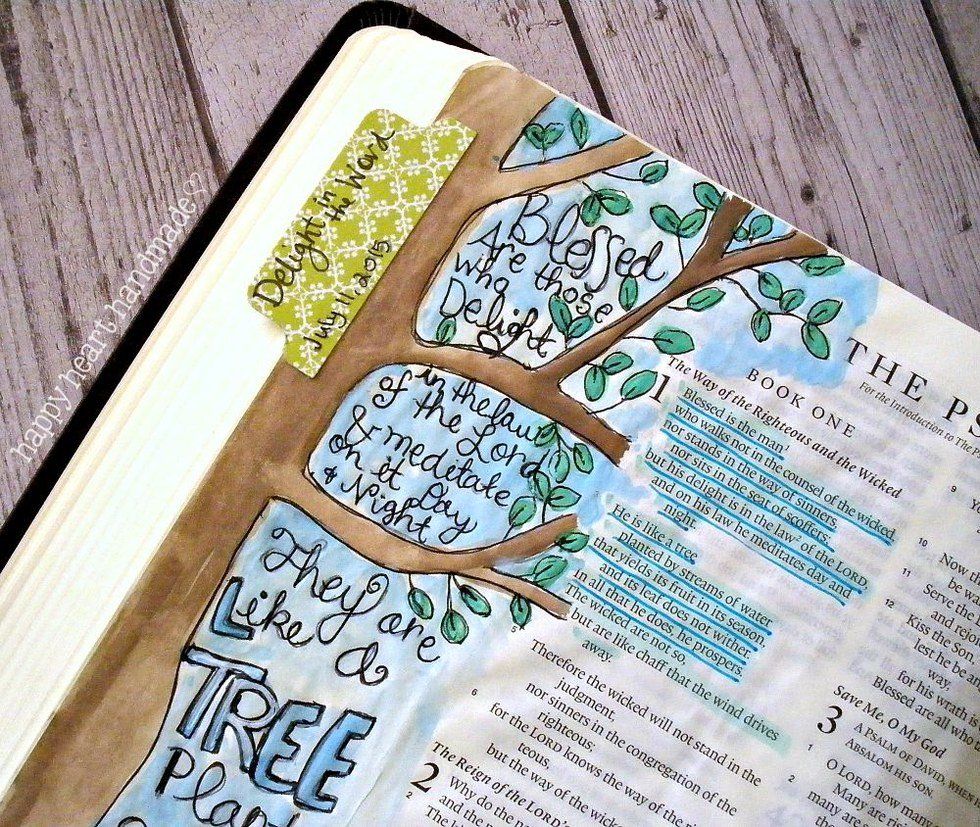 happy heart handmade
Delight in Word
the
July 11. 2015
Blessed
Are those
who
Delight
in the law
of the Lord
& meditate
on it Day
& Night
They are
Like a
TREE
THE PS
For the Introduction to The
BOOK ONE
The Way of the Righteous and the Wicked
1 Blessed is the man¹
who walks not in the counsel of the wicked,
nor stands in the way of sinners,
nor sits in the seat of scoffers;
but his delight is in the law² of the LORD,
and on his law he meditates day and
night.
He is like a tree
planted by streams of water
that yields its fruit in its season,
and its leaf does not wither.
In all that he does, he prospers.
The wicked are not so,
but are like chaff that the wind drives
away.
5 Therefore the wicked will not stand in the
judgment,
nor sinners in the congregation of the
righteous;
6 for the LORD knows the way of the
righ
teous,
but the way of the wicked
The Reign of the LORD's
2 Why do the
and the
2
9
10 Now
be
11 Serve the
and
12 Kiss the Son
lest he be
way,
for his wrath
Blessed are all who
Save Me, O My God
3 A PSALM OF DAVID, WHEN
ABSALOM HIS SON.
1 O LORD, how many
Many are
2 many are